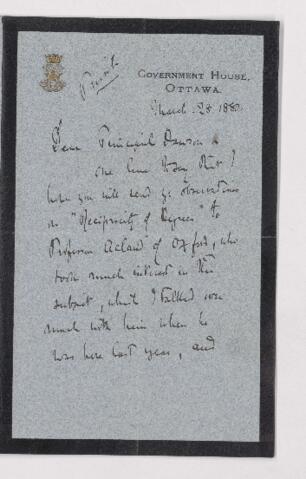 Private
GOVERNMENT HOUSE,
OTTAWA.
March 28 1880
Dear Principal Dawson
one line to say that I
hope you will send yr observations
on "Reciprocity of Degrees" to
Professor Acland of Oxford, who
took much interest in the
subject, which I talked over
much with him when he
was here last year, and